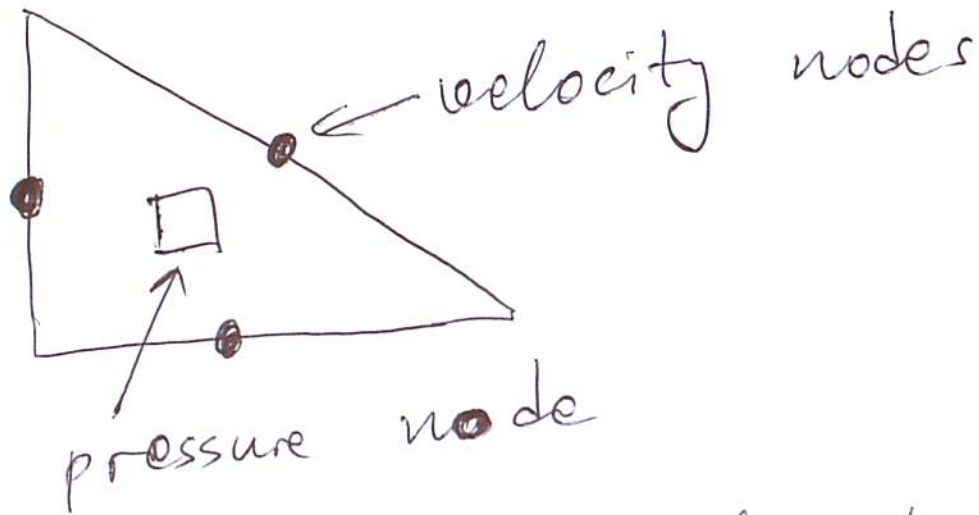 velocity nodes
pressure node